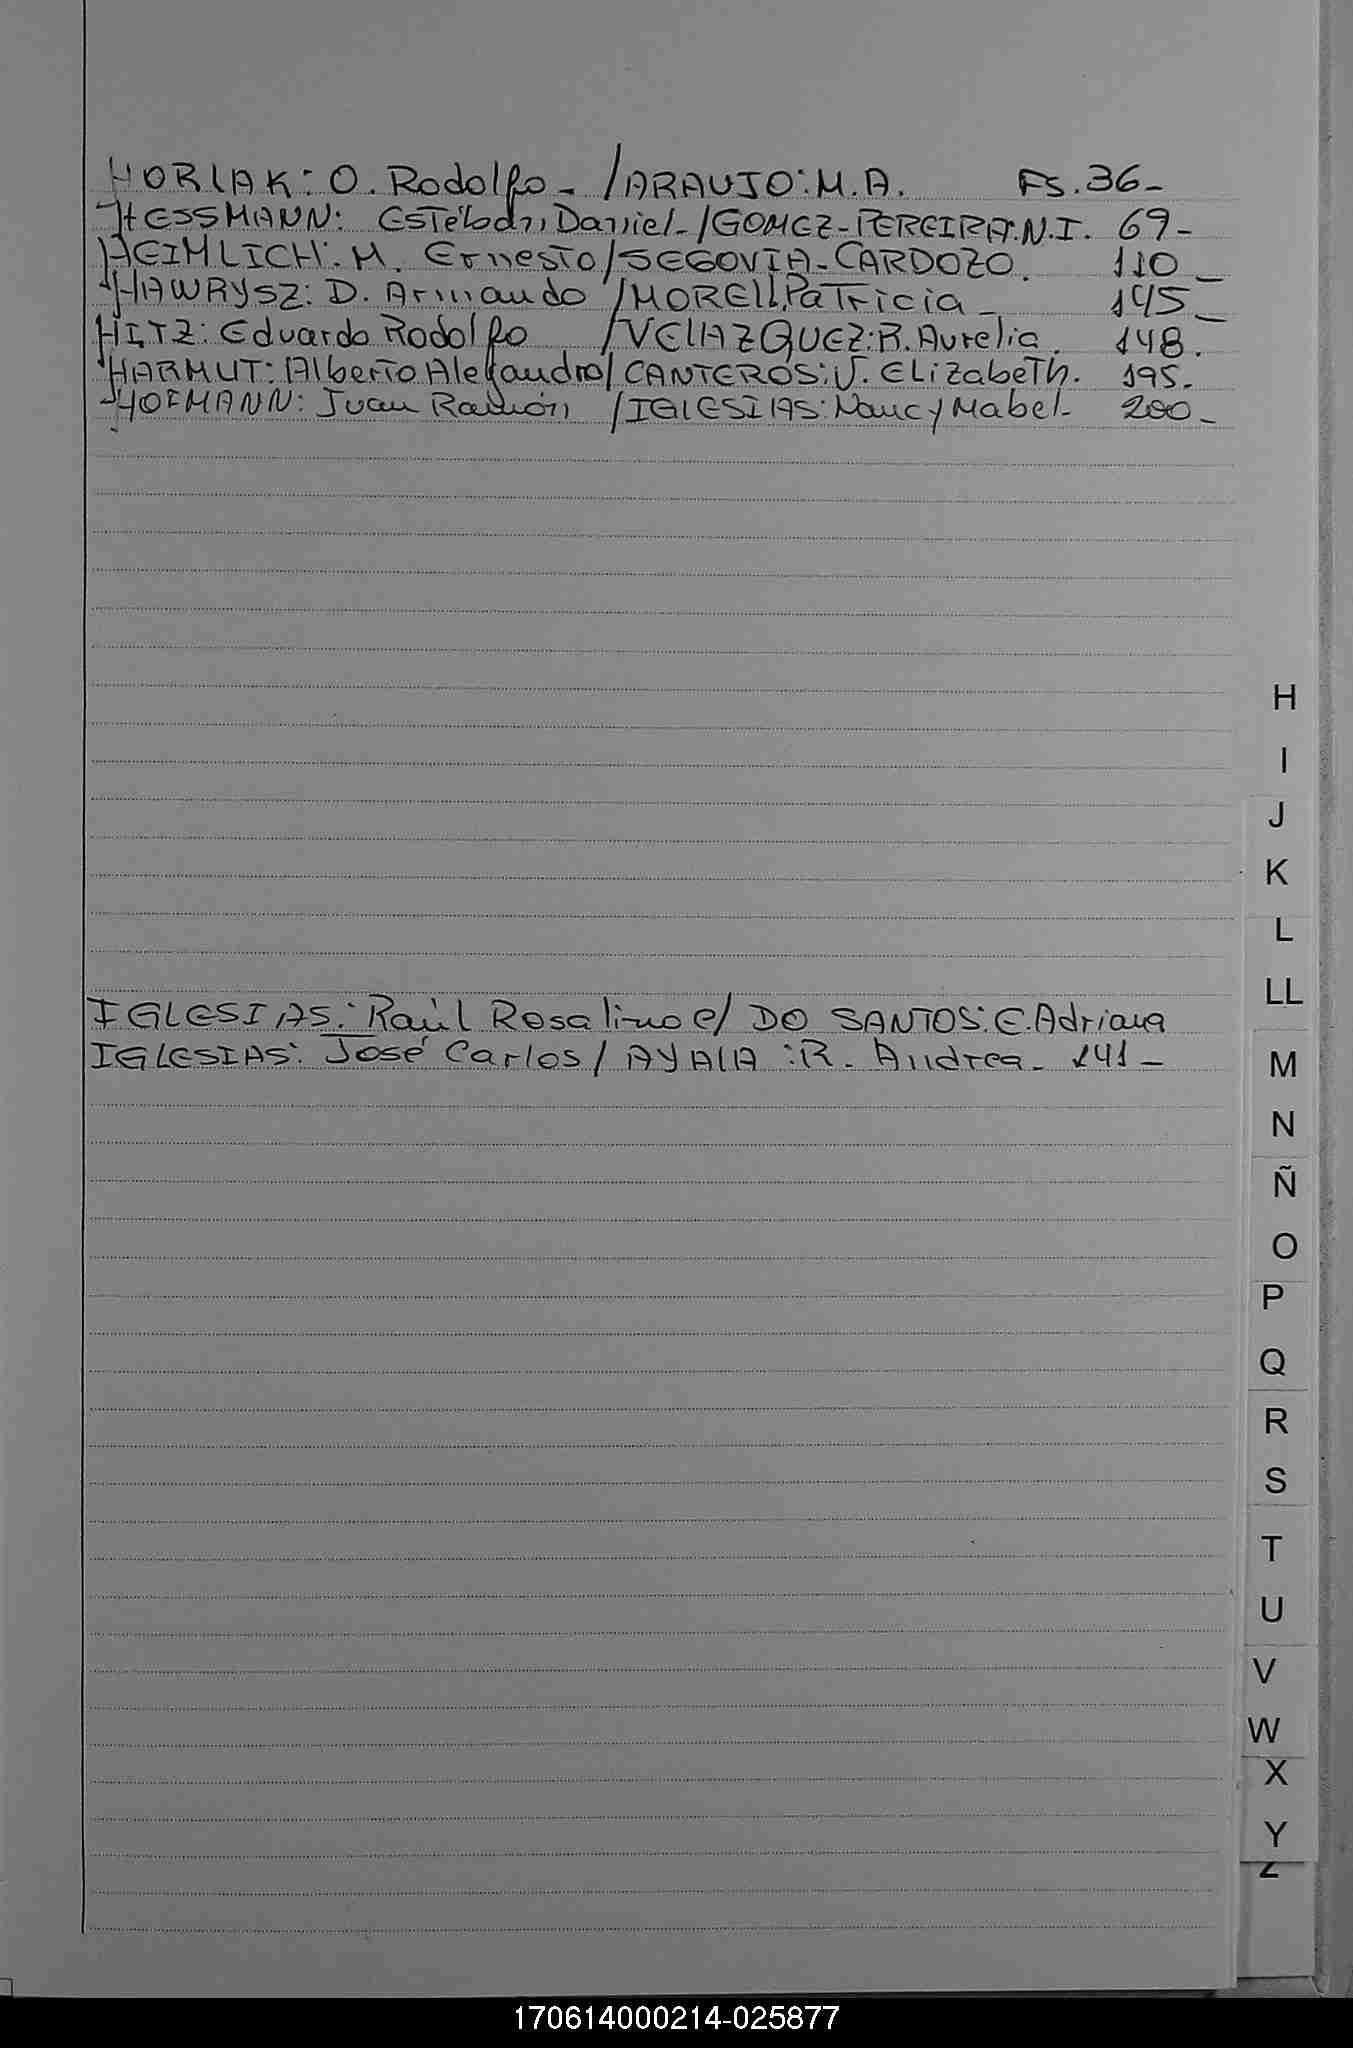 HORLAK: O. Rodolfo - / ARAUJO: M.A. Fs. 36-
HESSMANN: Estéban, Daniel - / GOMEZ - PEREIRA: N.I. 69-
HEIMLICH: M. Ernesto / SEGOVIA - CARDOZO. 110-
HAWRYSZ: D. Armando / MORELL: Patricia - 145-
HITZ: Eduardo Rodolfo / VELAZQUEZ: R. Aurelia. 148.
HARMUT: Alberto Alejandro / CANTEROS: J. Elizabeth. 195.
HOFMANN: Juan Ramón / IGLESIAS: Nancy Mabel - 200-
IGLESIAS: Raúl Rosalino c/ DO SANTOS: E. Adriana
IGLESIAS: José Carlos / AYALA: R. Andrea - 141-
H
I
J
K
L
LL
M
N
Ñ
O
P
Q
R
S
T
U
V
W
X
Y
Z
170614000214-025877